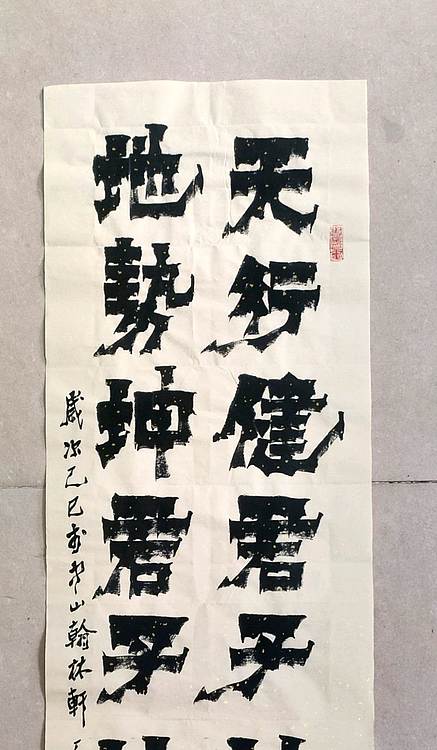 天行健君子
地勢坤君子
歲次乙巳書山翰林軒